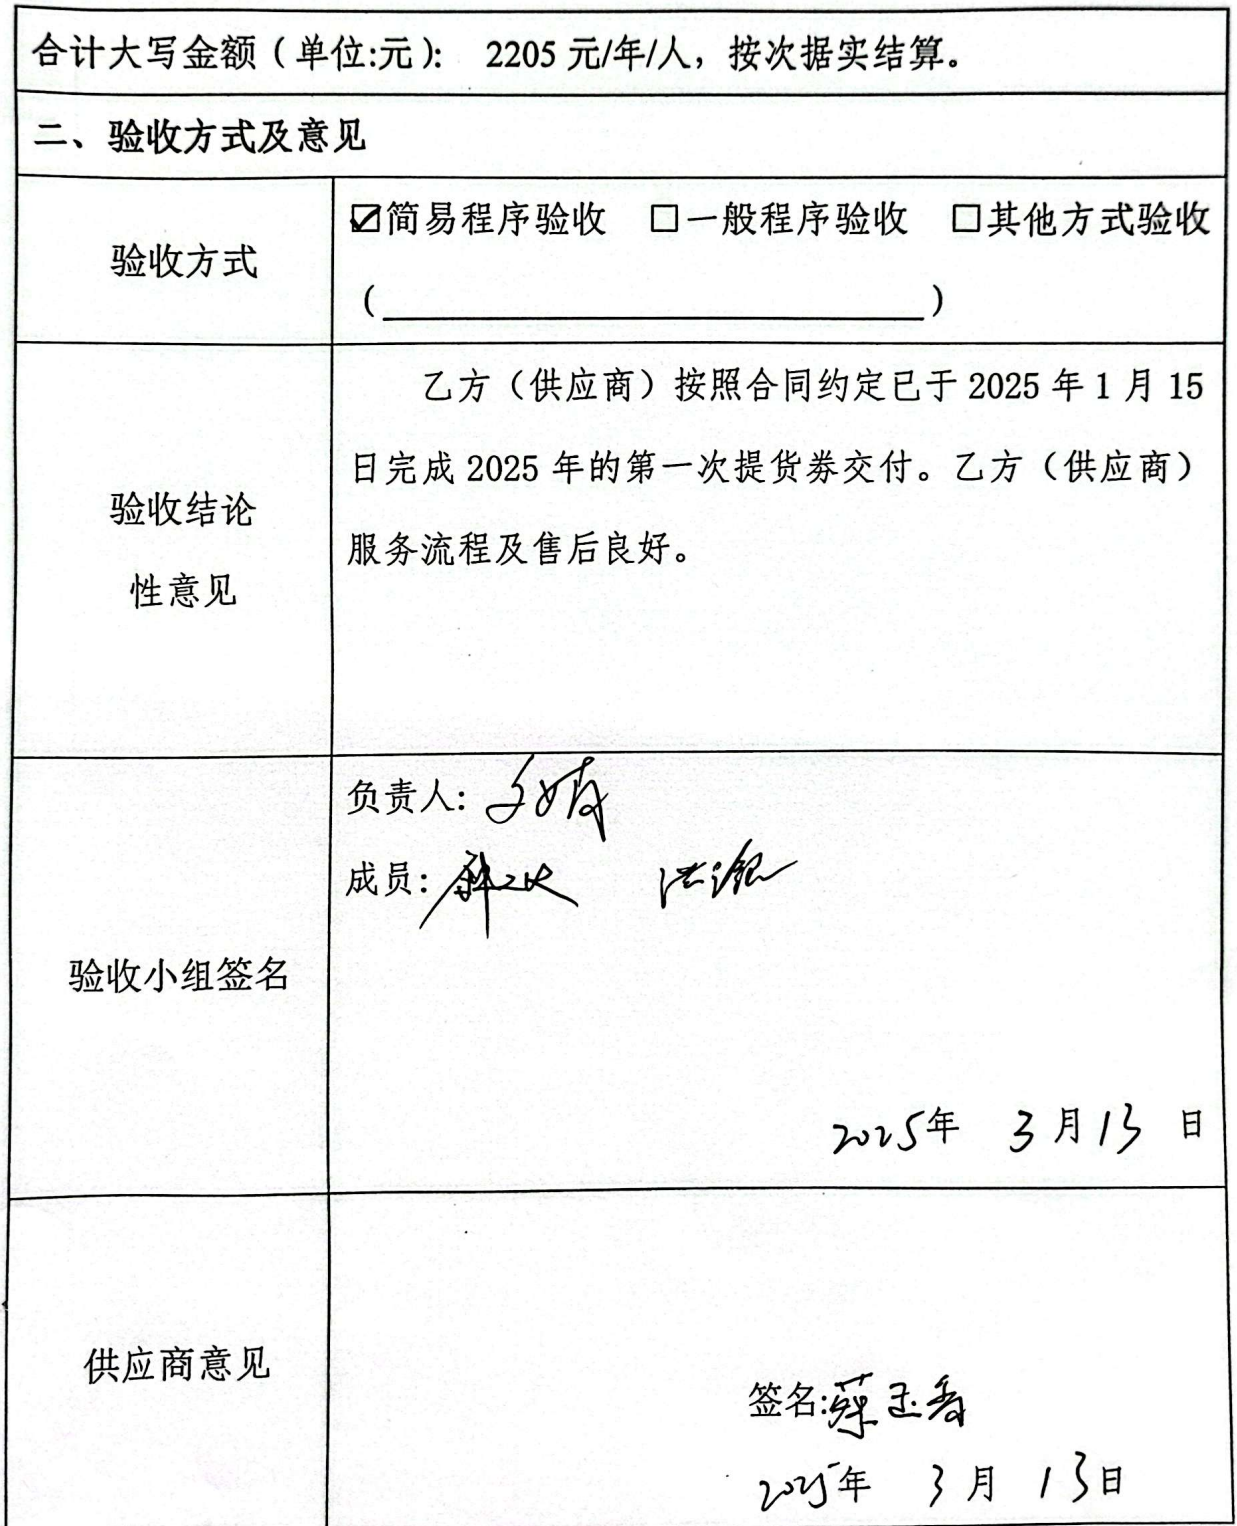 合计大写金额（单位:元）： 2205 元/年/人，按次据实结算。
二、验收方式及意见
验收方式
☑简易程序验收 □一般程序验收 □其他方式验收
（                    ）
验收结论
性意见
乙方（供应商）按照合同约定已于 2025 年 1 月 15
日完成 2025 年的第一次提货券交付。乙方（供应商）
服务流程及售后良好。
验收小组签名
负责人：
成员：
2025年 3 月 13 日
供应商意见
签名:蘇玉香
2025年 3 月 13 日